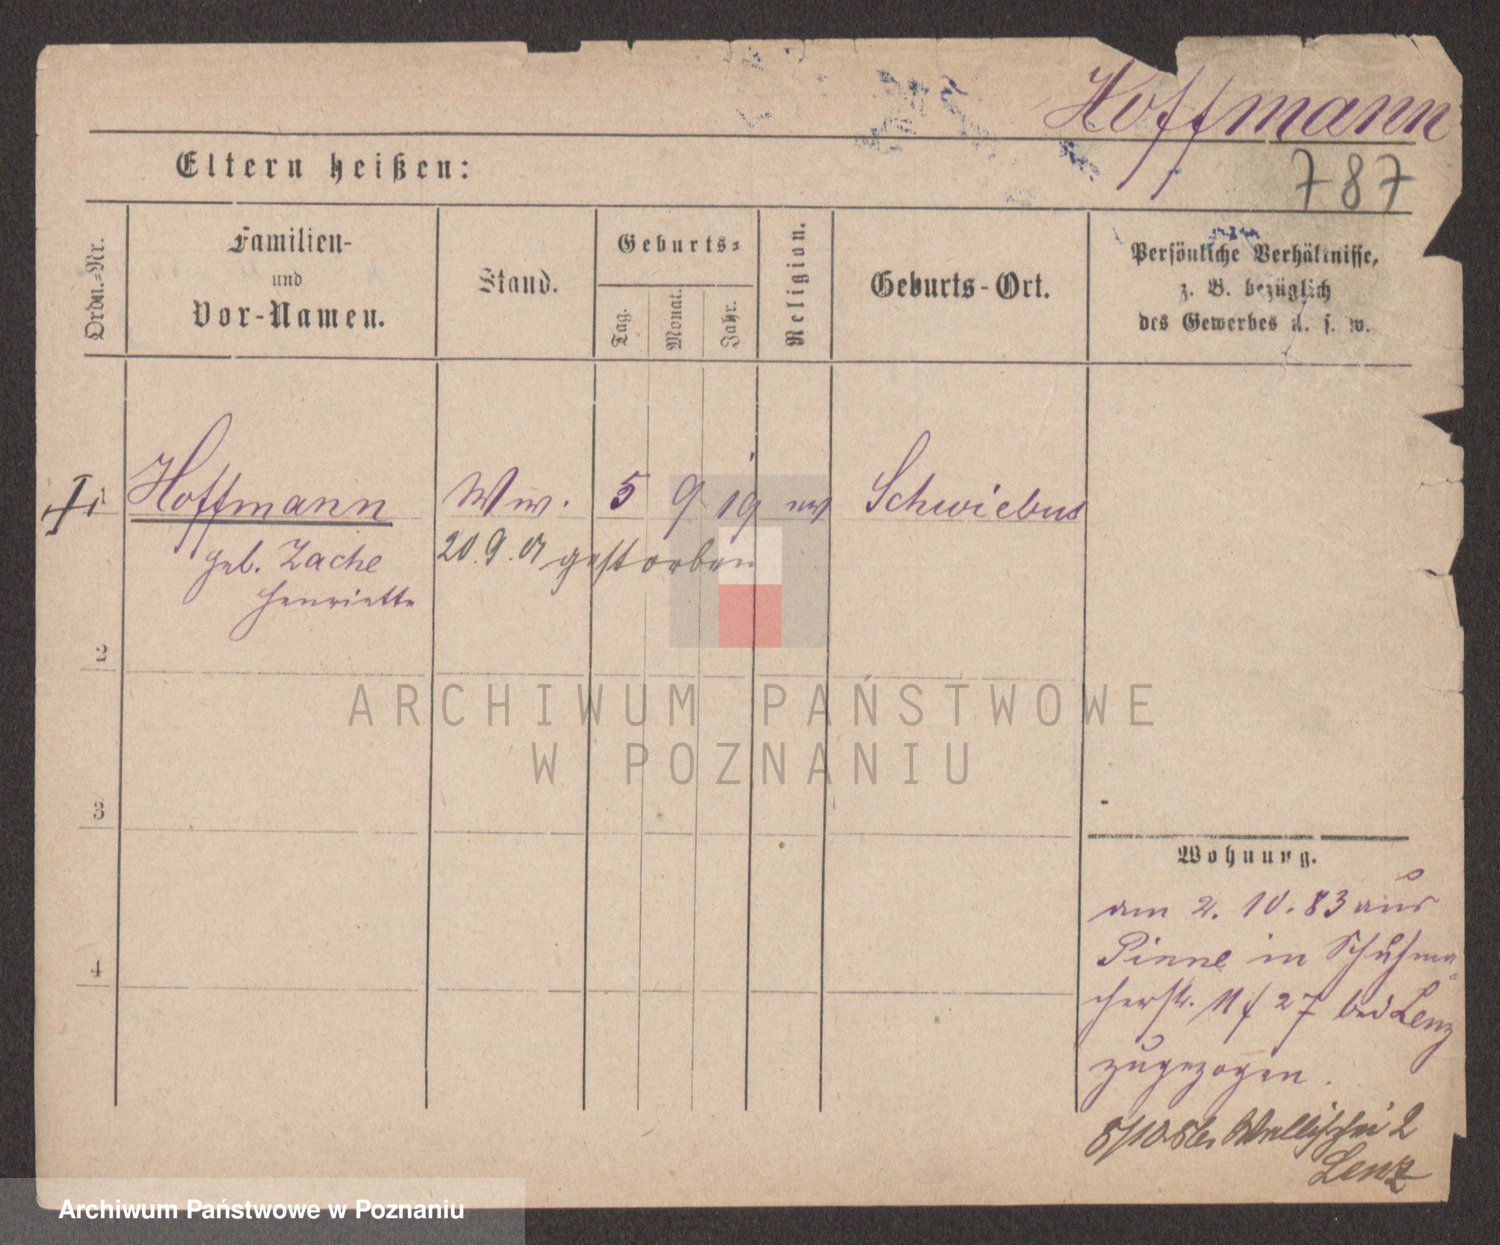 Hoffmann
787
Eltern heißen:
Ordn.-Nr.
Familien-
und
Vor-Namen.
Stand.
Geburts-
Tag.
Monat.
Jahr.
Religion.
Geburts-Ort.
Persönliche Verhältnisse,
z. B. bezüglich
des Gewerbes u. s. w.
1 Hoffmann Ww. 5 9 19 ev Schwiebus
geb. Zache
Henriette
20. 9. 01 gestorben
2
3
4
Wohnung.
am 2. 10. 83 aus
Pinne in Schuhma-
cherstr. 27 bei Lenz
zugezogen.
Wallischei 2
Lenz
ARCHIWUM PAŃSTWOWE
W POZNANIU
Archiwum Państwowe w Poznaniu